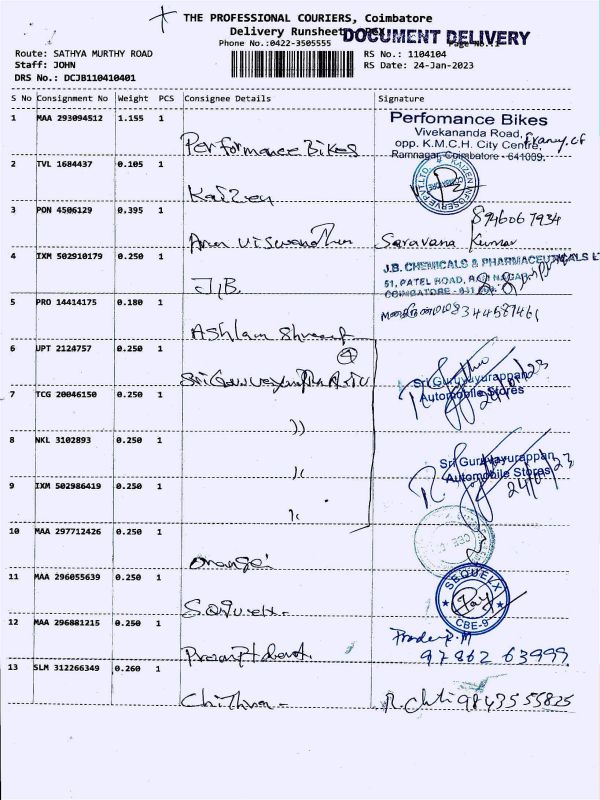 THE PROFESSIONAL COURIERS, Coimbatore
Delivery Runsheet
DOCUMENT DELIVERY
Phone No.:0422-3505555
Page No.:1
Route: SATHYA MURTHY ROAD
RS No.: 1104104
Staff: JOHN
RS Date: 24-Jan-2023
DRS No.: DCJB110410401
S No Consignment No Weight PCS Consignee Details Signature
1 MAA 293094512 1.155 1
Performance Bikes
Perfomance Bikes
Vivekananda Road,
opp. K.M.C.H. City Centre,
Ramnagar, Coimbatore - 641009.
2 TVL 1684437 0.105 1
Kaizen
KAIZEN INFOSERVE PVT LTD
3 PON 4506129 0.395 1
Arun Viswanathan
8946067934
Saravana Kumar
4 IXM 502910179 0.250 1
J.B.
J.B. CHEMICALS & PHARMACEUTICALS L
51, PATEL ROAD, RAM NAGAR,
COIMBATORE - 641 009.
5 PRO 14414175 0.180 1
8344587461
6 UPT 2124757 0.250 1
4
Sri Guruvayurappan
Automobile Stores
24/01/23
7 TCG 20046150 0.250 1
))
8 NKL 3102893 0.250 1
Sri Guruvayurappan
Automobile Stores
24/01/23
9 IXM 502986419 0.250 1
10 MAA 297712426 0.250 1
Orange
11 MAA 296055639 0.250 1
SEQUELX
CBE-9
12 MAA 296881215 0.250 1
97862 63999
13 SLM 312266349 0.260 1
Chithra -
9843555825